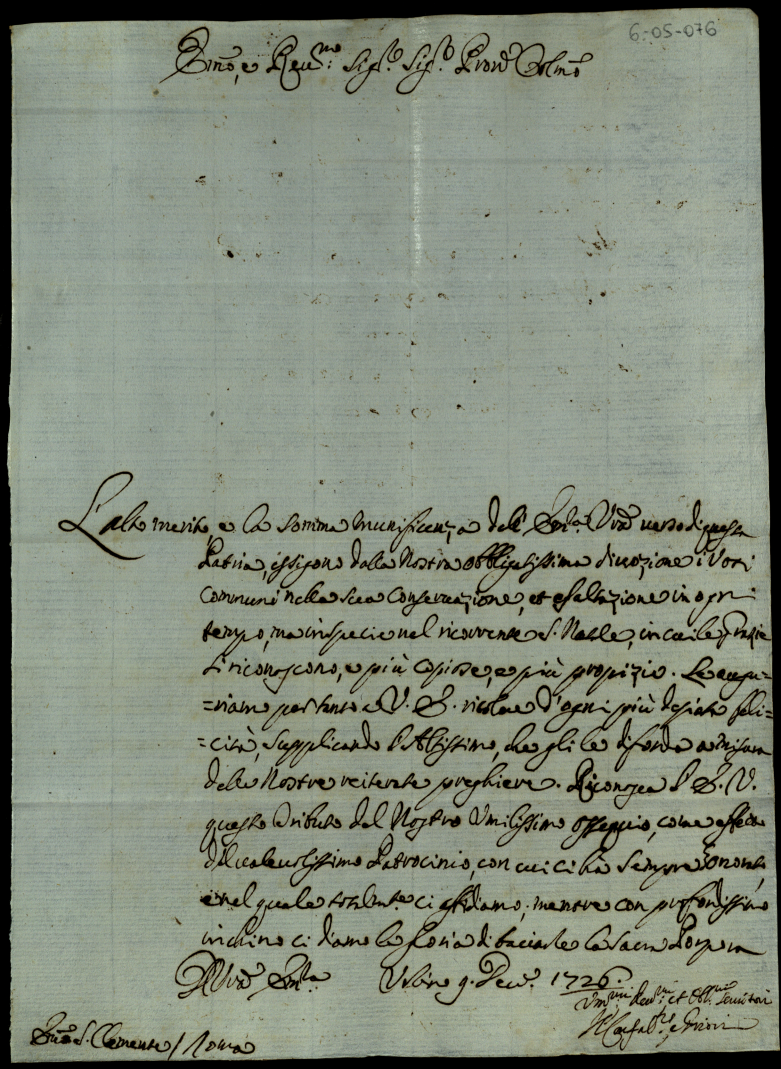 6-05-076
Emo, e Reu.mo Sig.e Sig.e Pron Colmo
L'alto merito e la somma munificenza dell' Em.za Vra verso di questa
Patria, essigono dalla Nostra obbligatissima diuozione i Voti
communi nella sua Conseruazione, et esaltazione in ogni
tempo, ma in specie nel ricorrente S. Natle, in cui le Grazie
si riconoscono, e più copiose, e più propizie. Le augu=
=riamo per tanto a V. E. ricolme d'ogni più desiata feli=
=cità, supplicando l'Altissimo, che gli le difonda a misura
delle Nostre reiterate preghiere. Riconosca l'E. V.
questo tributo del Nostro Vmilissimo ossequio, come effetto
del ualeuolissimo Patrocinio, con cui ci hà sempre
e nel quale totalmte ci affidiamo; mentre con profondissimo
inchino ci diamo la gloria di baciarle la Sacra Porpora
Di Vra Em.za Vrbino 9. Decre. 1726.
Vm.mi Deu.mi et Obb.mi Seruitori
Il Confal.re, e Priori
Emo S. Clemente / Roma